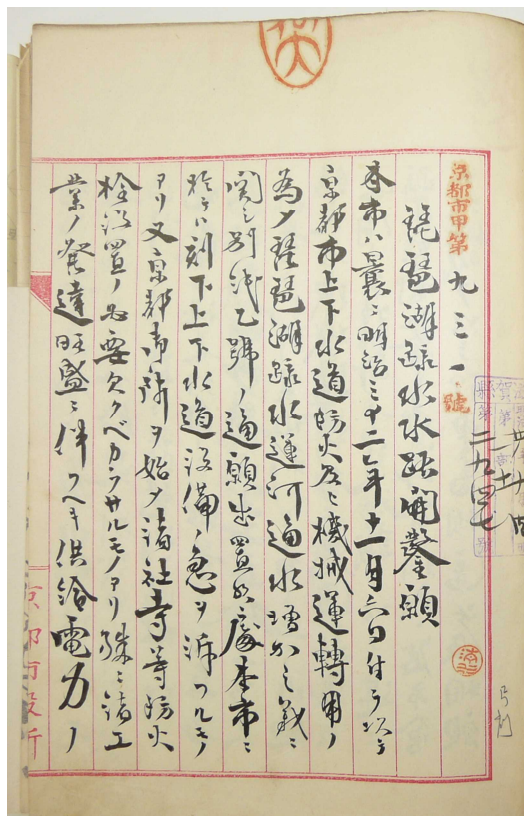 京都市甲第九三一號
琵琶湖疏水水路開鑿願
本市ハ曩ニ明治三十二年十一月六日付ヲ以テ
京都市上下水道防火及ヒ機械運轉用ノ
為メ琵琶湖疏水運河通水増加之義ニ
関シ別紙乙號ノ通願出置候處本市ニ
於テハ刻下上下水道設備ノ急ヲ訴フルモノ
アリ又京都御所ヲ始メ諸社寺等防火
栓設置ノ如要欠クベカラサルモノアリ殊ニ諸工
業ノ発達旺盛ニ伴フヘキ供給電力ノ
京都市役所